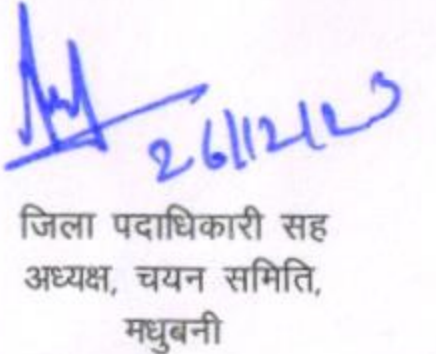 26/12/23
जिला पदाधिकारी सह
अध्यक्ष, चयन समिति,
मधुबनी